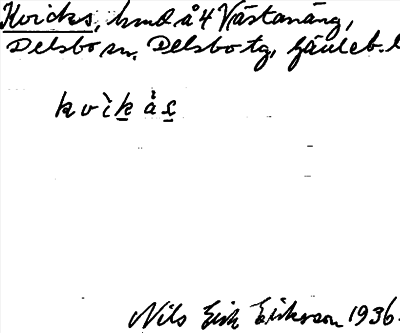 Kvickås, hmd å 4 Västanäng,
Delsbo sn, Delsbo tg, Gävleb. l
kvìkås
Nils Erik Eriksson 1936.